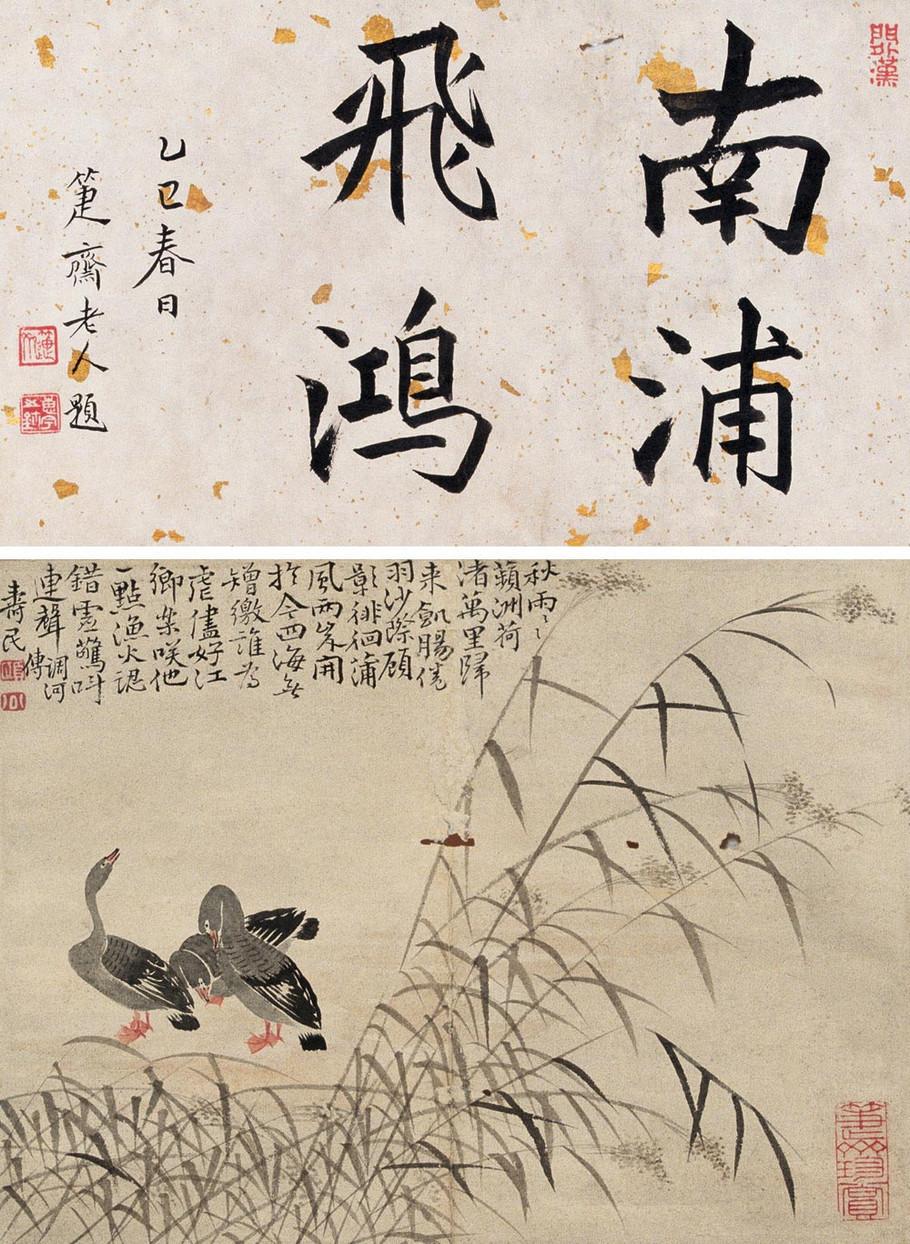 門外漢
南浦
飛鴻
乙巳春日
箑齋老人題
秋雨〻〻
蘋洲荷
渚萬里歸
来飢腸倦
羽沙際顧
影徘徊蒲
風兩岸開
於今四海無
矰繳誰為
虐儘好江
鄉樂咲他
一點漁火誤
錯虛驚叫
連聲 調河
傳
壽民